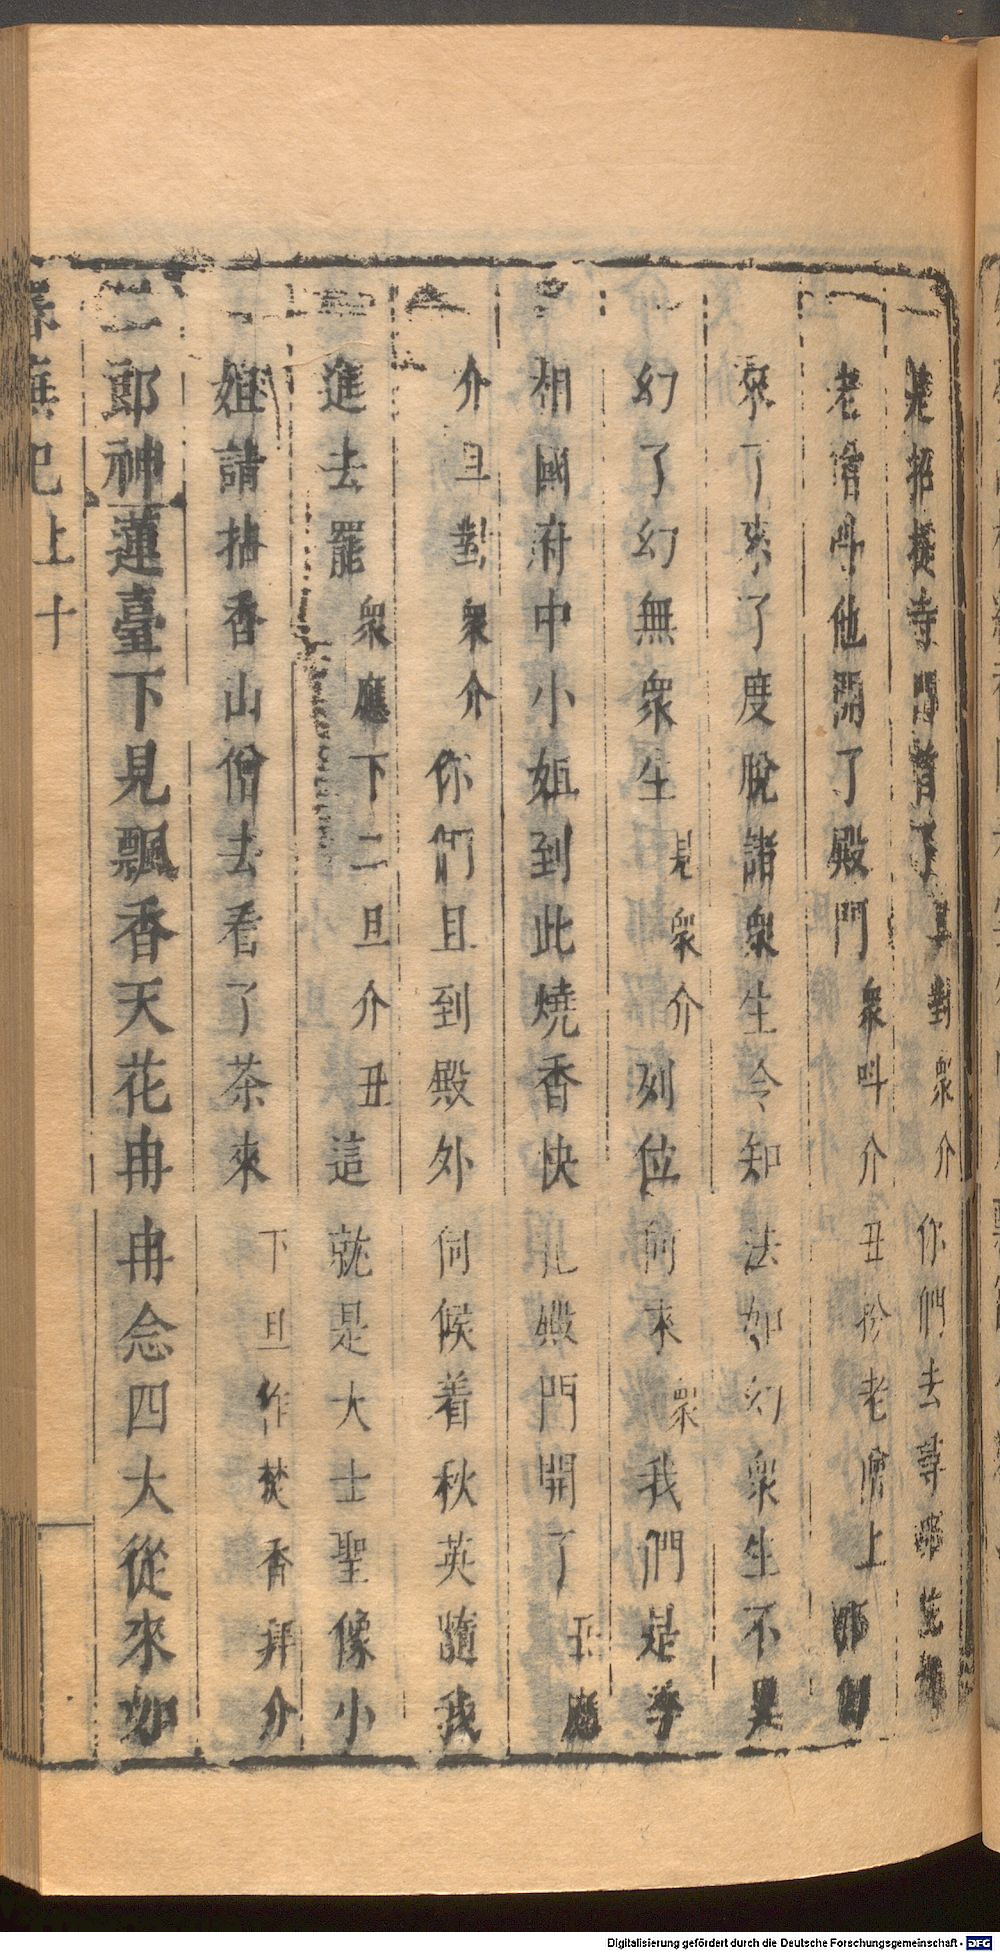 是招提寺門首了 旦對衆介 你們去尋
老僧呌他開了殿門 衆呌介 丑扮老僧上
來了來了度脫諸衆生令知法如幻衆生不異
幻了幻無衆生 見衆介 列位何來 衆 我們是
相國府中小姐到此燒香快把殿門開了 丑應
介 旦對衆介 你們且到殿外伺候着秋英隨我
進去罷 衆應下二旦介 丑 這就是大士聖像小
姐請拈香山僧去看了茶來 下旦作焚香拜介
二郎神 蓮臺下見飄香天花冉冉念四大從來如
春蕪記 上 十
Digitalisierung gefördert durch die Deutsche Forschungsgemeinschaft - DFG